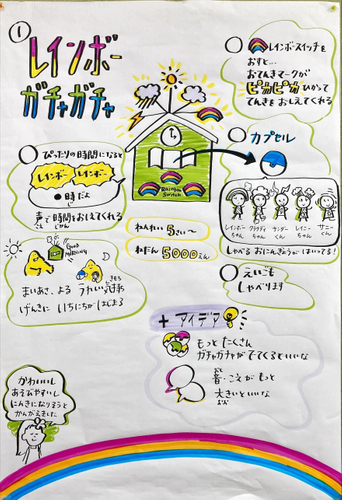 ①
レインボー
ガチャガチャ
レインボースイッチを
おすと…
おてんきマークが
ピカピカ ひかって
てんきを おしえてくれる
ぴったりの時間になると
レインボー レインボー
●時だよ
声で時間をおしえてくれる
こえ じかん
Rainbow
Switch
カプセル
レインボー
ちゃん
クラウディ
くん
サンダー
くん
レイニー
ちゃん
サニー
くん
しゃべる おにんぎょうが はいってる!
GOOD
MORNING
まいあさ、よる うれしい きもち
げんきに いちにちが はじまる
ねんれい 5さい〜
ねだん 5000えん
えいごも
しゃべります
+ アイデア
もっと たくさん
ガチャガチャが でてくるといいな
音・こえが もっと
おと
大きいといいな
おお
かわいいし
あそびやすいし
にんきになりそうと
かんがえました